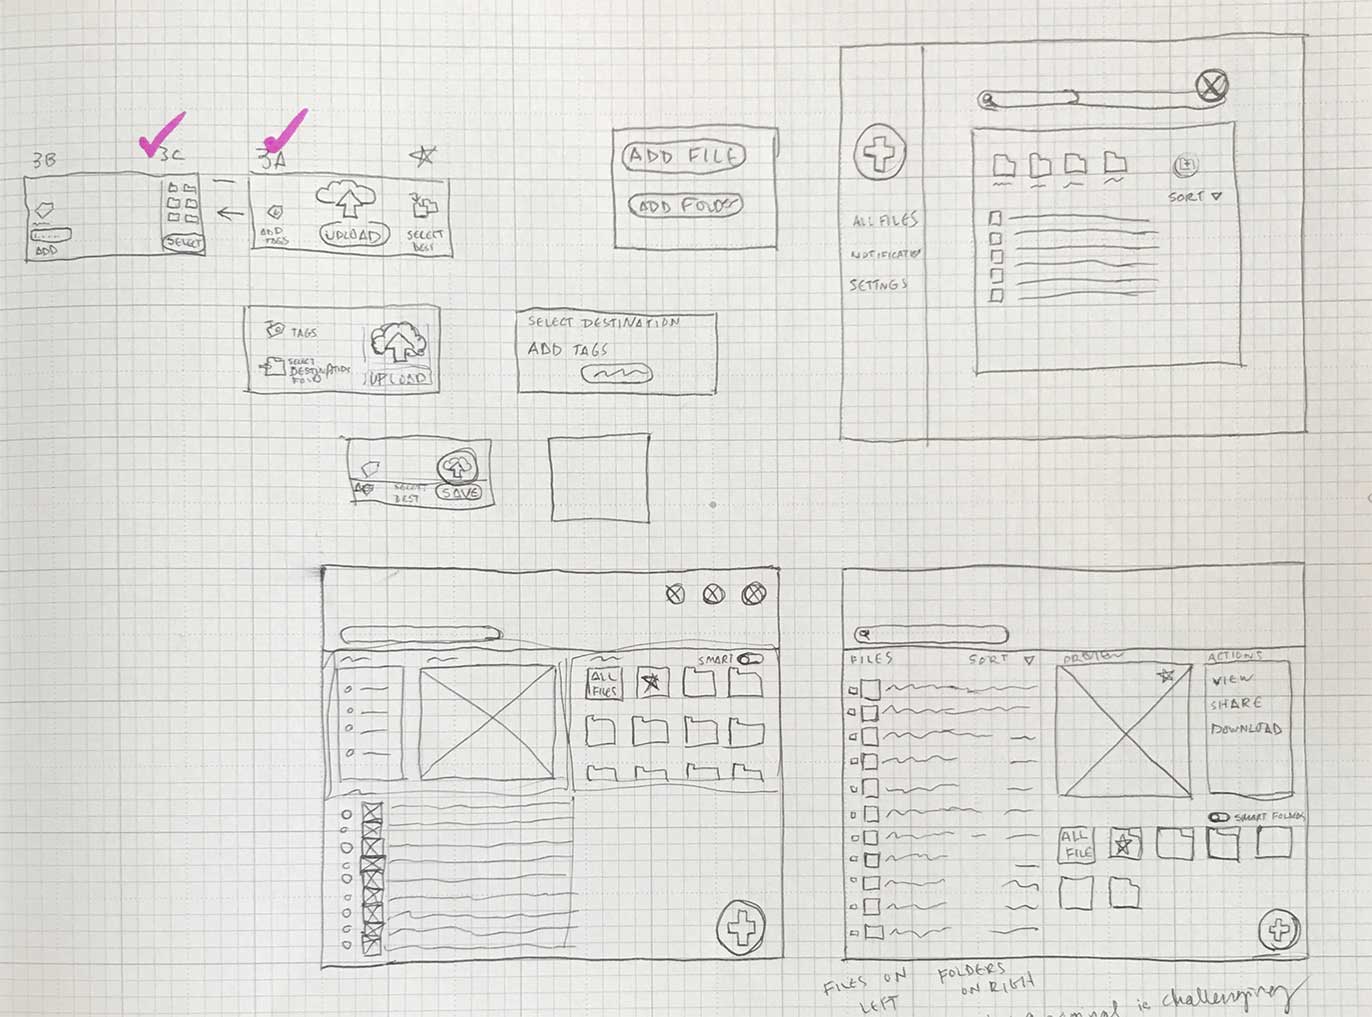 3B
3C
3A
ADD
SELECT
ADD
TAGS
UPLOAD
SELECT
DEST
ADD FILE
ADD FOLDER
ALL FILES
SETTNGS
SORT
TAGS
SELECT
DESTINATION
UPLOAD
SELECT DESTINATION
ADD TAGS
SELECT
DEST
SAVE
SMART
ALL
FILES
FILES
SORT
PREVIEW
ACTIONS
VIEW
SHARE
DOWNLOAD
SMART FOLDERS
ALL
FILE
FILES ON
LEFT
FOLDERS
ON RIGH
is challenging